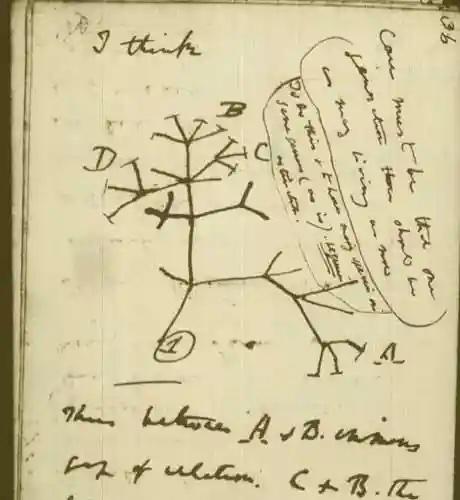 36
I think
Case must be that one
generation then should be
as many living as now
To do this & to have many species in
same genus (as is). requires
extinction.
B
D
C
1
A
Thus between A & B. immens
gap of relation. C & B. the